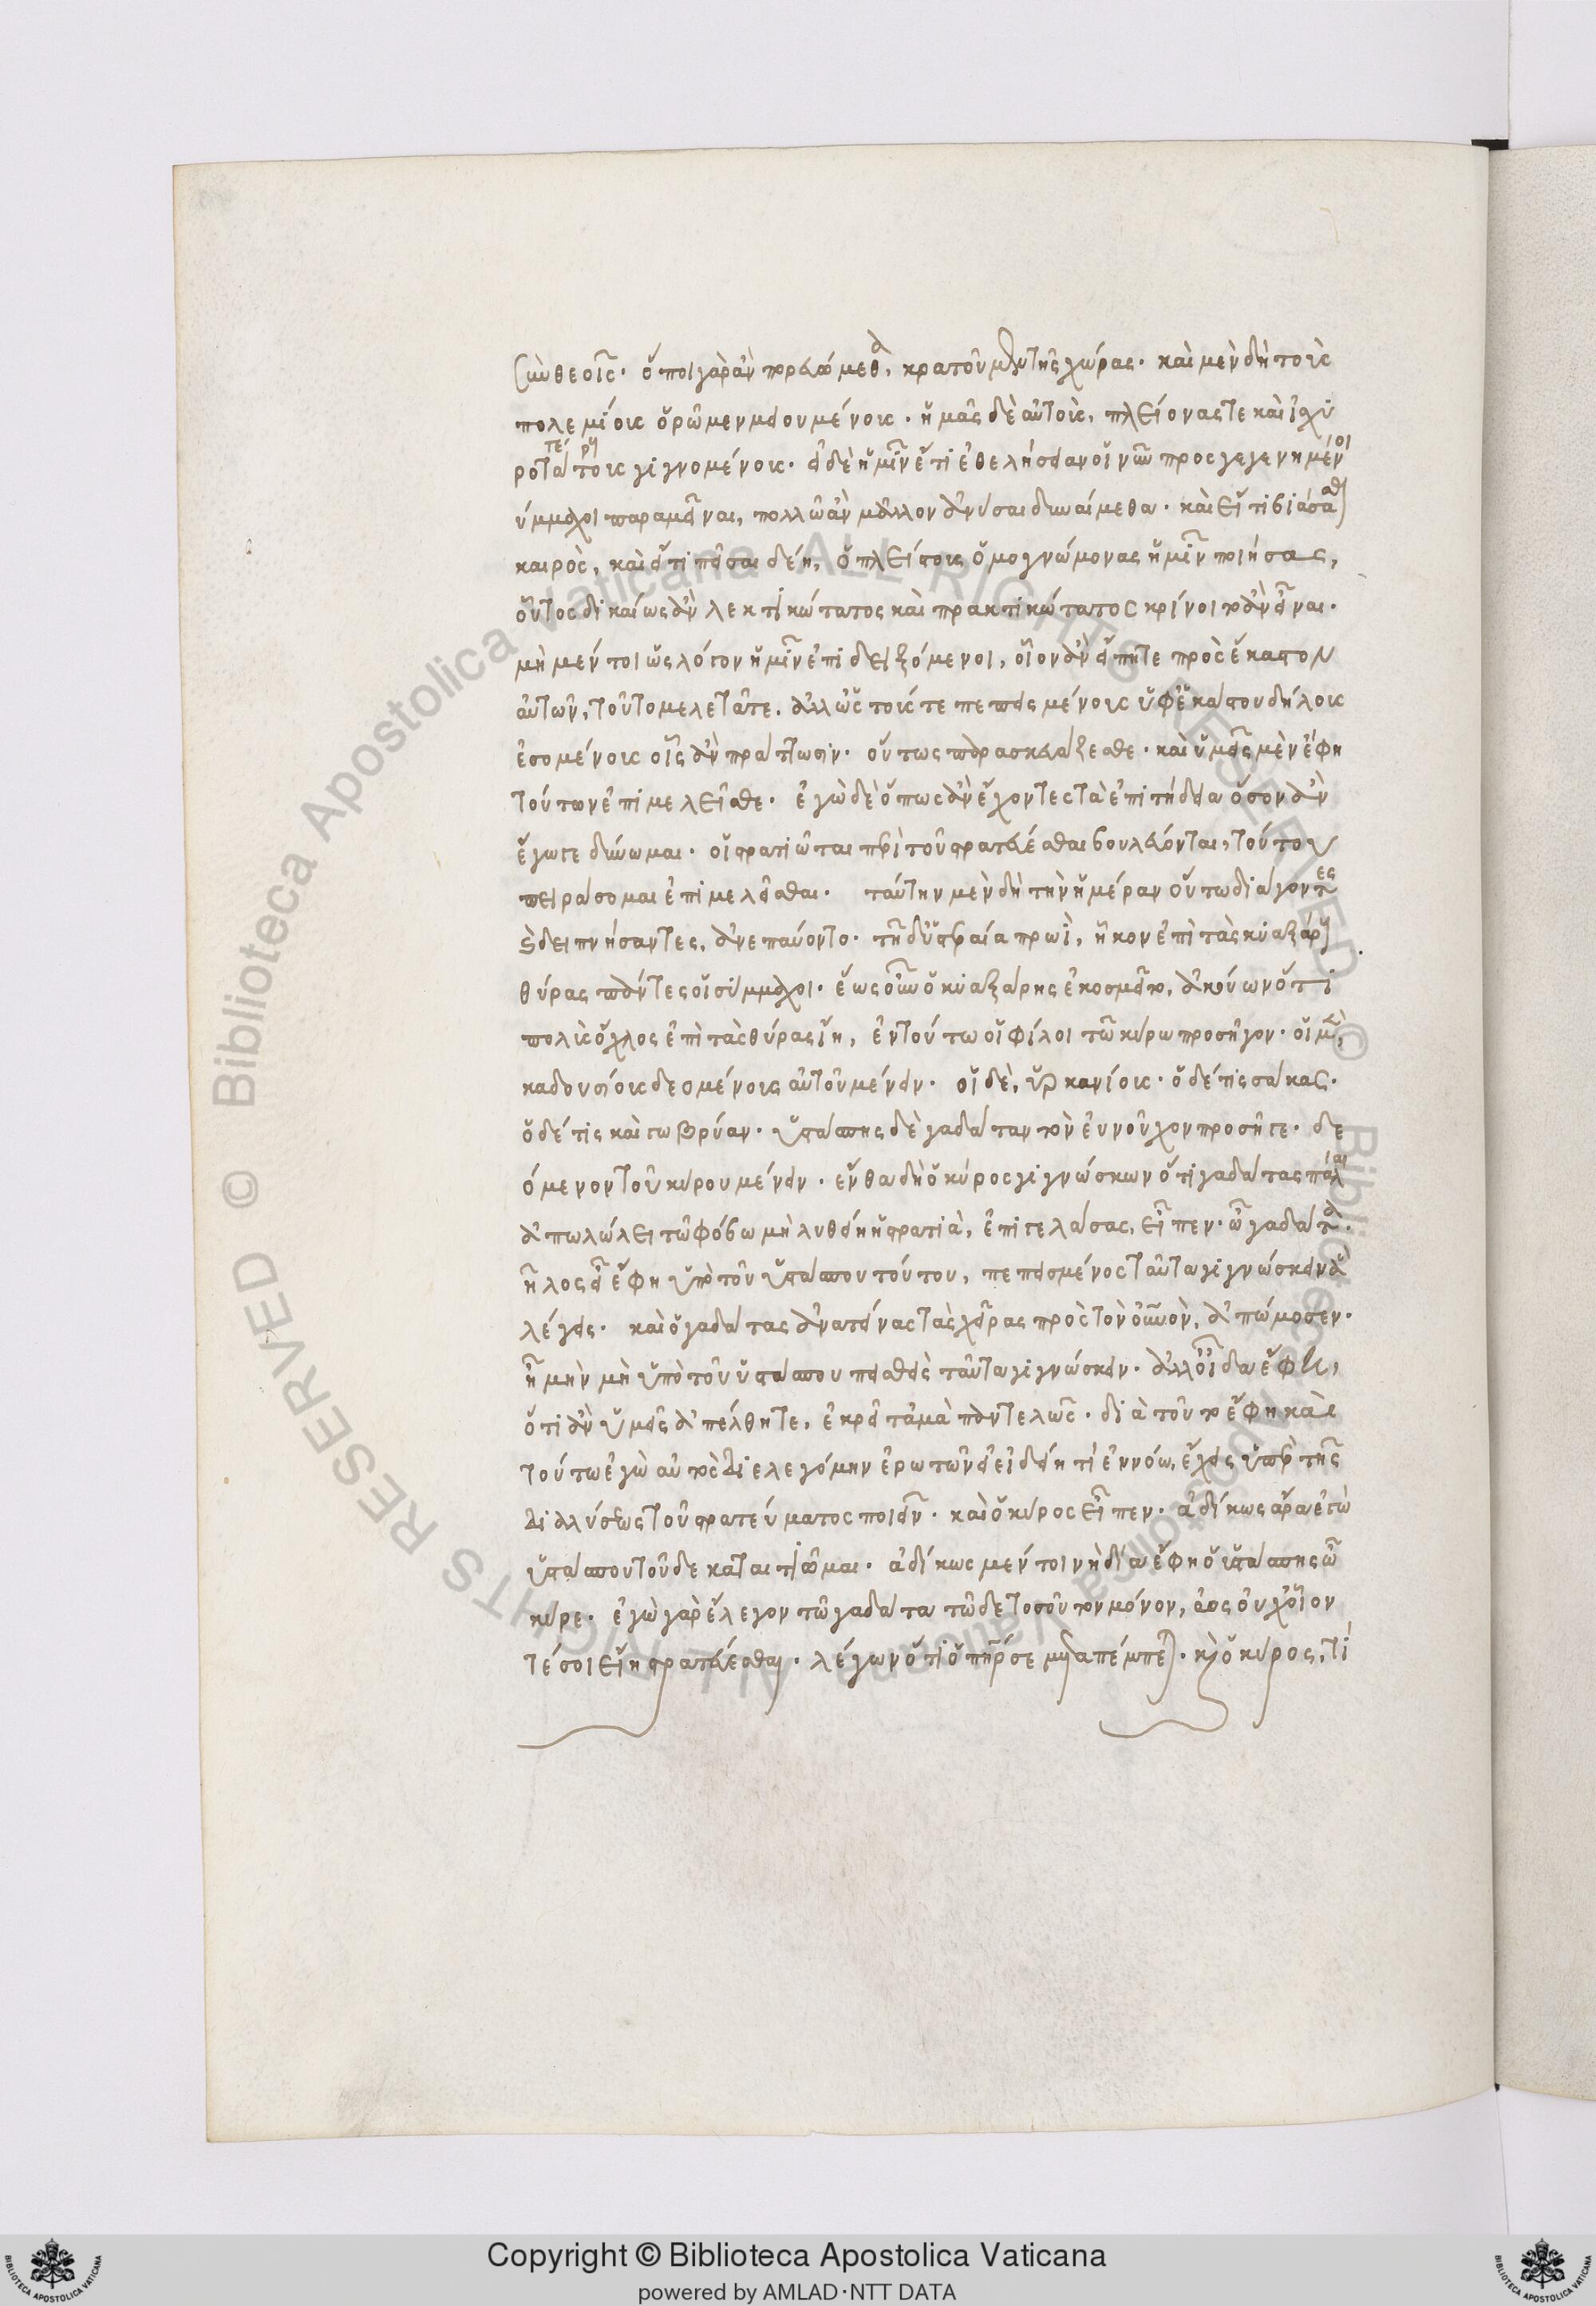 σὺν θεοῖς. ὅποι γὰρ ἂν πορευώμεθα, κρατοῦμεν τῆς χώρας. καὶ μὲν δὴ τοὺς
πολεμίους ὁρῶμεν μειουμένους. ἡμᾶς δὲ αὐτοὺς, πλείονάς τε καὶ ἰσχυ
ροτέρους γιγνομένους. εἰ δὲ ἡμῖν ἔτι ἐθελήσειαν οἱ νῦν προσγεγενημένοι
σύμμαχοι παραμεῖναι, πολλῷ ἂν μᾶλλον ἀνύσαι δυναίμεθα. καὶ εἴ τι βιάσασθαι
καιρὸς, καὶ εἴ τι πεῖσαι δέῃ, ὁ πλείστους ὁμογνώμονας ἡμῖν ποιήσας,
οὗτος δικαίως ἂν λεκτικώτατος καὶ πρακτικώτατος κρίνοιτο ἂν εἶναι.
μὴ μέντοι ὡς λόγον ἡμῖν ἐπιδειξόμενοι, οἷον ἂν εἴπητε πρὸς ἕκαστον
αὐτῶν, τοῦτο μελετᾶτε. ἀλλ' ὡς τούς τε πεπεισμένους ὑφ' ἑκάστου δήλους
ἐσομένους οἷς ἂν πράττωσιν. οὕτως παρασκευάζεσθε. καὶ ὑμεῖς μὲν ἔφη
τούτων ἐπιμελεῖσθε. ἐγὼ δὲ ὅπως ἂν ἔχοντες τὰ ἐπιτήδεια ὅσον ἂν
ἔγωγε δύνωμαι. οἱ στρατιῶται περὶ τοῦ στρατεύεσθαι βουλεύονται, τούτου
πειράσομαι ἐπιμελεῖσθαι. ταύτην μὲν δὴ τὴν ἡμέραν οὕτω διάγοντες
καὶ δειπνήσαντες, ἀνεπαύοντο. τῇ δ' ὑστεραία πρωῒ, ἧκον ἐπὶ τὰς κυαξάρου
θύρας πάντες οἱ σύμμαχοι. ἕως οὖν ὁ κυαξάρης ἐκοσμεῖτο, ἀκούων ὅτι
πολὺς ὄχλος ἐπὶ τὰς θύρας εἴη, ἐν τούτω οἱ φίλοι τῶ κύρω προσῆγον. οἱ μὲν,
καδουσίους δεομένους αὐτοῦ μένειν. οἱ δὲ, ὑρκανίους. ὁ δέ τις σάκας.
ὁ δέ τις καὶ γωβρύαν. ὑστάσπης δὲ γαδάταν τὸν ἐυνοῦχον προσῆγε. δε
όμενον τοῦ κύρου μένειν. ἔνθα δὴ ὁ κύρος γιγνώσκων ὅτι γαδάτας πάλαι
ἀπωλώλει τῶ φόβω μὴ λυθείη ἡ στρατιὰ, ἐπιγελάσας, εἶπεν. ὦ γαδάτα.
δῆλος εἶ ἔφη ὑπὸ τοῦ ὑστάσπου τούτου, πεπεισμένος ταῦτα γιγνώσκειν ἃ
λέγεις. καὶ ὁ γαδάτας ἀνατείνας τὰς χεῖρας πρὸς τὸν οὐρανὸν, ἀπώμοσεν.
ἦ μὴν μὴ ὑπὸ τοῦ ὑστάσπου πεισθεὶς ταῦτα γιγνώσκειν. ἀλλ' οἶδα ἔφη,
ὅτι ἂν ὑμεῖς ἀπέλθητε, ἐκρεῖ τἀμὰ παντελῶς. διὰ τοῦτο ἔφη καὶ
τούτω ἐγὼ αὐτὸς διελεγόμην ἐρωτῶν εἰ εἰδείη τί ἐννόω, ἔχεις ὑπὲρ τῆς
διαλύσεως τοῦ στρατεύματος ποιεῖν. καὶ ὁ κύρος εἶπεν. ἀδίκως ἄρα ἐγὼ
ὑστάσπου τοῦδε καταιτιῶμαι. ἀδίκως μέντοι νὴ δία ἔφη ὁ ὑστάσπης ὦ
κύρε. ἐγὼ γὰρ ἔλεγον τῶ γαδάτα τῶδε τοσοῦτον μόνον, ὡς οὐχ οἷον
τέ σοι εἴη στρατεύεσθαι. λέγων ὅτι ὁ πατήρ σε μεταπέμπεται. καὶ ὁ κύρος, τί
Copyright © Biblioteca Apostolica Vaticana
powered by AMLAD·NTT DATA